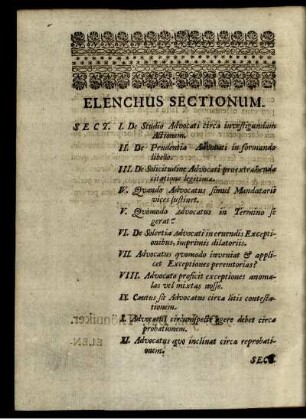 ELENCHUS SECTIONUM.
SECT. I. De Studio Advocati circa investigandam
Actionem.
II. De Prudentia Advocati in formando
libello.
III. De Solicitudine Advocati pro extrahenda
citatione legitima.
IV. Qvando Advocatus simul Mandatarii
vices sustinet.
V. Qvomodo Advocatus in Termino se
gerat?
VI. De Solertia Advocati in eruendis Excepti-
onibus, imprimis dilatoriis.
VII. Advocatus qvomodo inveniat & appli-
cet Exceptiones peremtorias?
VIII. Advocato proficit exceptiones anoma-
las vel mixtas nosse.
IX. Cautus sit Advocatus circa litis contesta-
tionem.
X. Advocatus circumspecte agere debet circa
probationem.
XI. Advocatus qvo inclinat circa reprobati-
onem.
SECT.